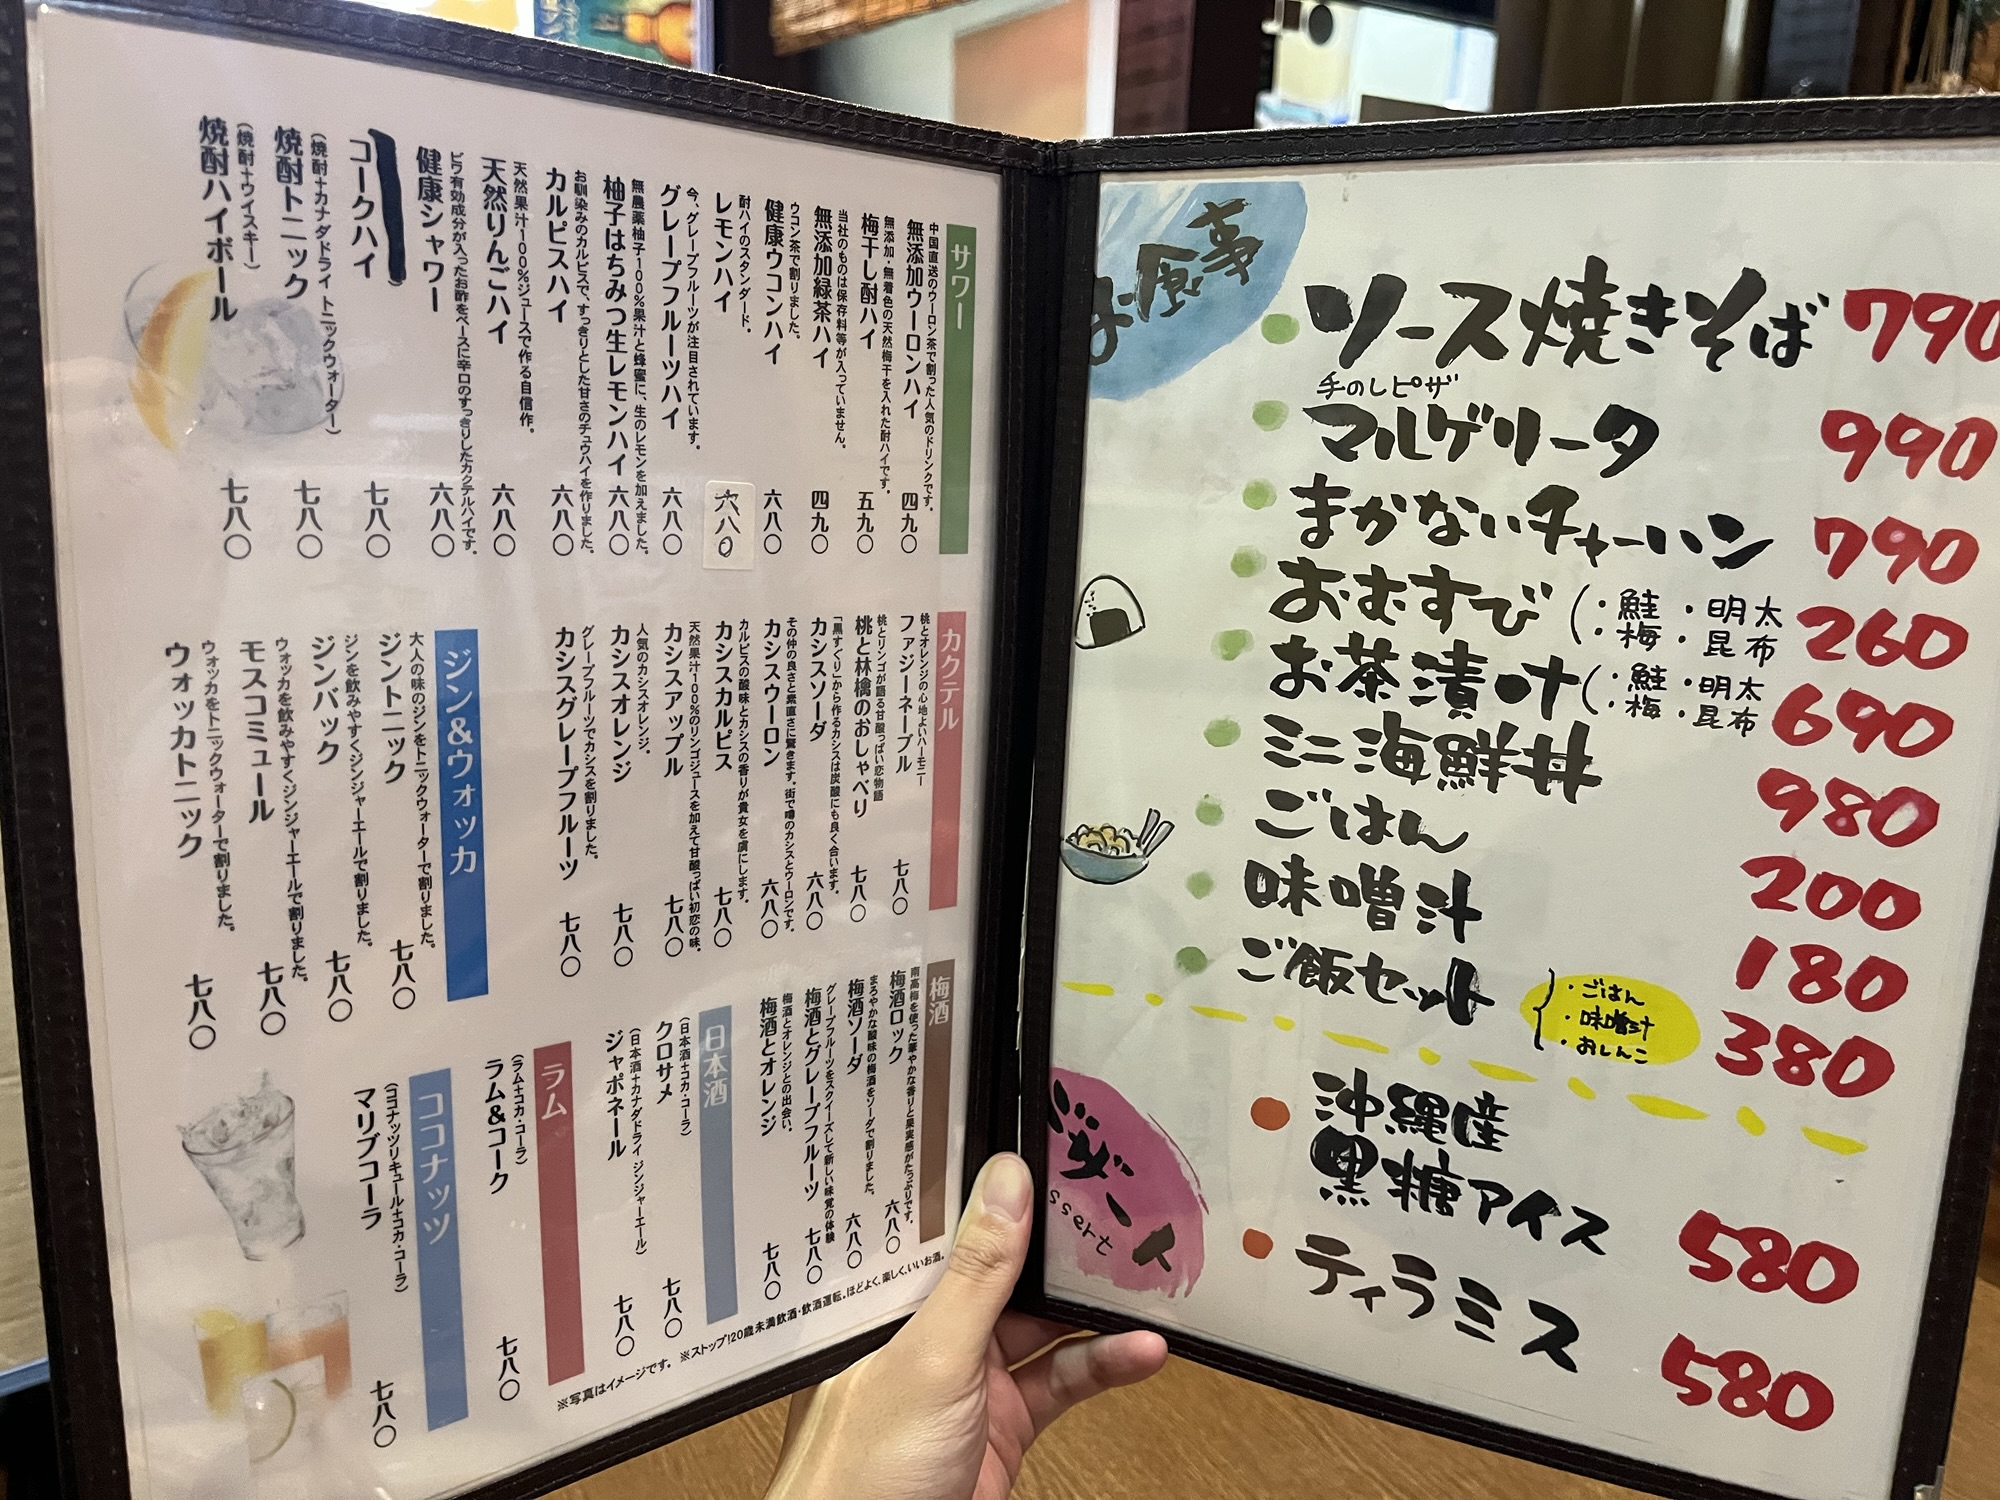 サワー
中国直送のウーロン茶で割った人気のドリンクです。
無添加ウーロンハイ 四九〇
無添加・無着色の天然梅干を入れた酎ハイです。
梅干し酎ハイ 五九〇
当社のものは保存料等が入っていません。
無添加緑茶ハイ 四九〇
ウコン茶で割りました。
健康ウコンハイ 六八〇
酎ハイのスタンダード。
レモンハイ 六八〇
今、グレープフルーツが注目されています。
グレープフルーツハイ 六八〇
無農薬柚子100%果汁と蜂蜜に、生のレモンを加えました。
柚子はちみつ生レモンハイ 六八〇
お馴染みのカルピスで、すっきりとした甘さのチュウハイを作りました。
カルピスハイ 六八〇
天然果汁100%ジュースで作る自信作。
天然りんごハイ 六八〇
ビワ有効成分が入ったお酢をベースに辛口のすっきりしたカクテルハイです。
健康シャワー 六八〇
コークハイ 七八〇
(焼酎+カナダドライ トニックウォーター)
焼酎トニック 七八〇
(焼酎+ウイスキー)
焼酎ハイボール 七八〇
カクテル
桃とオレンジの心地よいハーモニー
ファジーネーブル 七八〇
桃とリンゴが語る甘酸っぱい恋物語
桃と林檎のおしゃべり 七八〇
「黒すぐり」から作るカシスは炭酸にも良く合います。
カシスソーダ 六八〇
その仲の良さと素直さに驚きます。街で噂のカシスとウーロンです。
カシスウーロン 六八〇
カルピスの酸味とカシスの香りが貴女を虜にします。
カシスカルピス 七八〇
天然果汁100%のリンゴジュースを加えて甘酸っぱい初恋の味。
カシスアップル 七八〇
人気のカシスオレンジ。
カシスオレンジ 七八〇
グレープフルーツでカシスを割りました。
カシスグレープフルーツ 七八〇
ジン&ウォッカ
大人の味のジンをトニックウォーターで割りました。
ジントニック 七八〇
ジンを飲みやすくジンジャーエールで割りました。
ジンバック 七八〇
ウォッカを飲みやすくジンジャーエールで割りました。
モスコミュール 七八〇
ウォッカをトニックウォーターで割りました。
ウォッカトニック 七八〇
梅酒
南高梅を使った華やかな香りと果実感がたっぷりです。
梅酒ロック 六八〇
まろやかな酸味の梅酒をソーダで割りました。
梅酒ソーダ 六八〇
グレープフルーツをスクイーズして新しい味覚の体験
梅酒とグレープフルーツ 七八〇
梅酒とオレンジとの出会い。
梅酒とオレンジ 七八〇
日本酒
(日本酒+コカ・コーラ)
クロサメ 七八〇
(日本酒+カナダドライ ジンジャーエール)
ジャポネール 七八〇
ラム
(ラム+コカ・コーラ)
ラム&コーク 七八〇
ココナッツ
(ココナッツリキュール+コカ・コーラ)
マリブコーラ 七八〇
※写真はイメージです。 ※ストップ!20歳未満飲酒・飲酒運転。ほどよく、楽しく、いいお酒。
お食事
ソース焼きそば 790
手のしピザ
マルゲリータ 990
まかないチャーハン 790
おむすび (・鮭 ・明太 ・梅 ・昆布 260
お茶漬け (・鮭 ・明太 ・梅 ・昆布 690
ミニ海鮮丼 980
ごはん 200
味噌汁 180
ご飯セット ・ごはん ・味噌汁 ・おしんこ 380
デザート
ssert
沖縄産
黒糖アイス 580
ティラミス 580